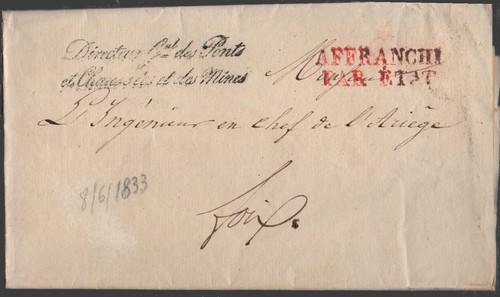 Directeur Gal. des Ponts
et Chaussées et des Mines
AFFRANCHI
PAR ÉTAT
L'Ingénieur en chef de l'Ariège
Foix.
8/6/1833